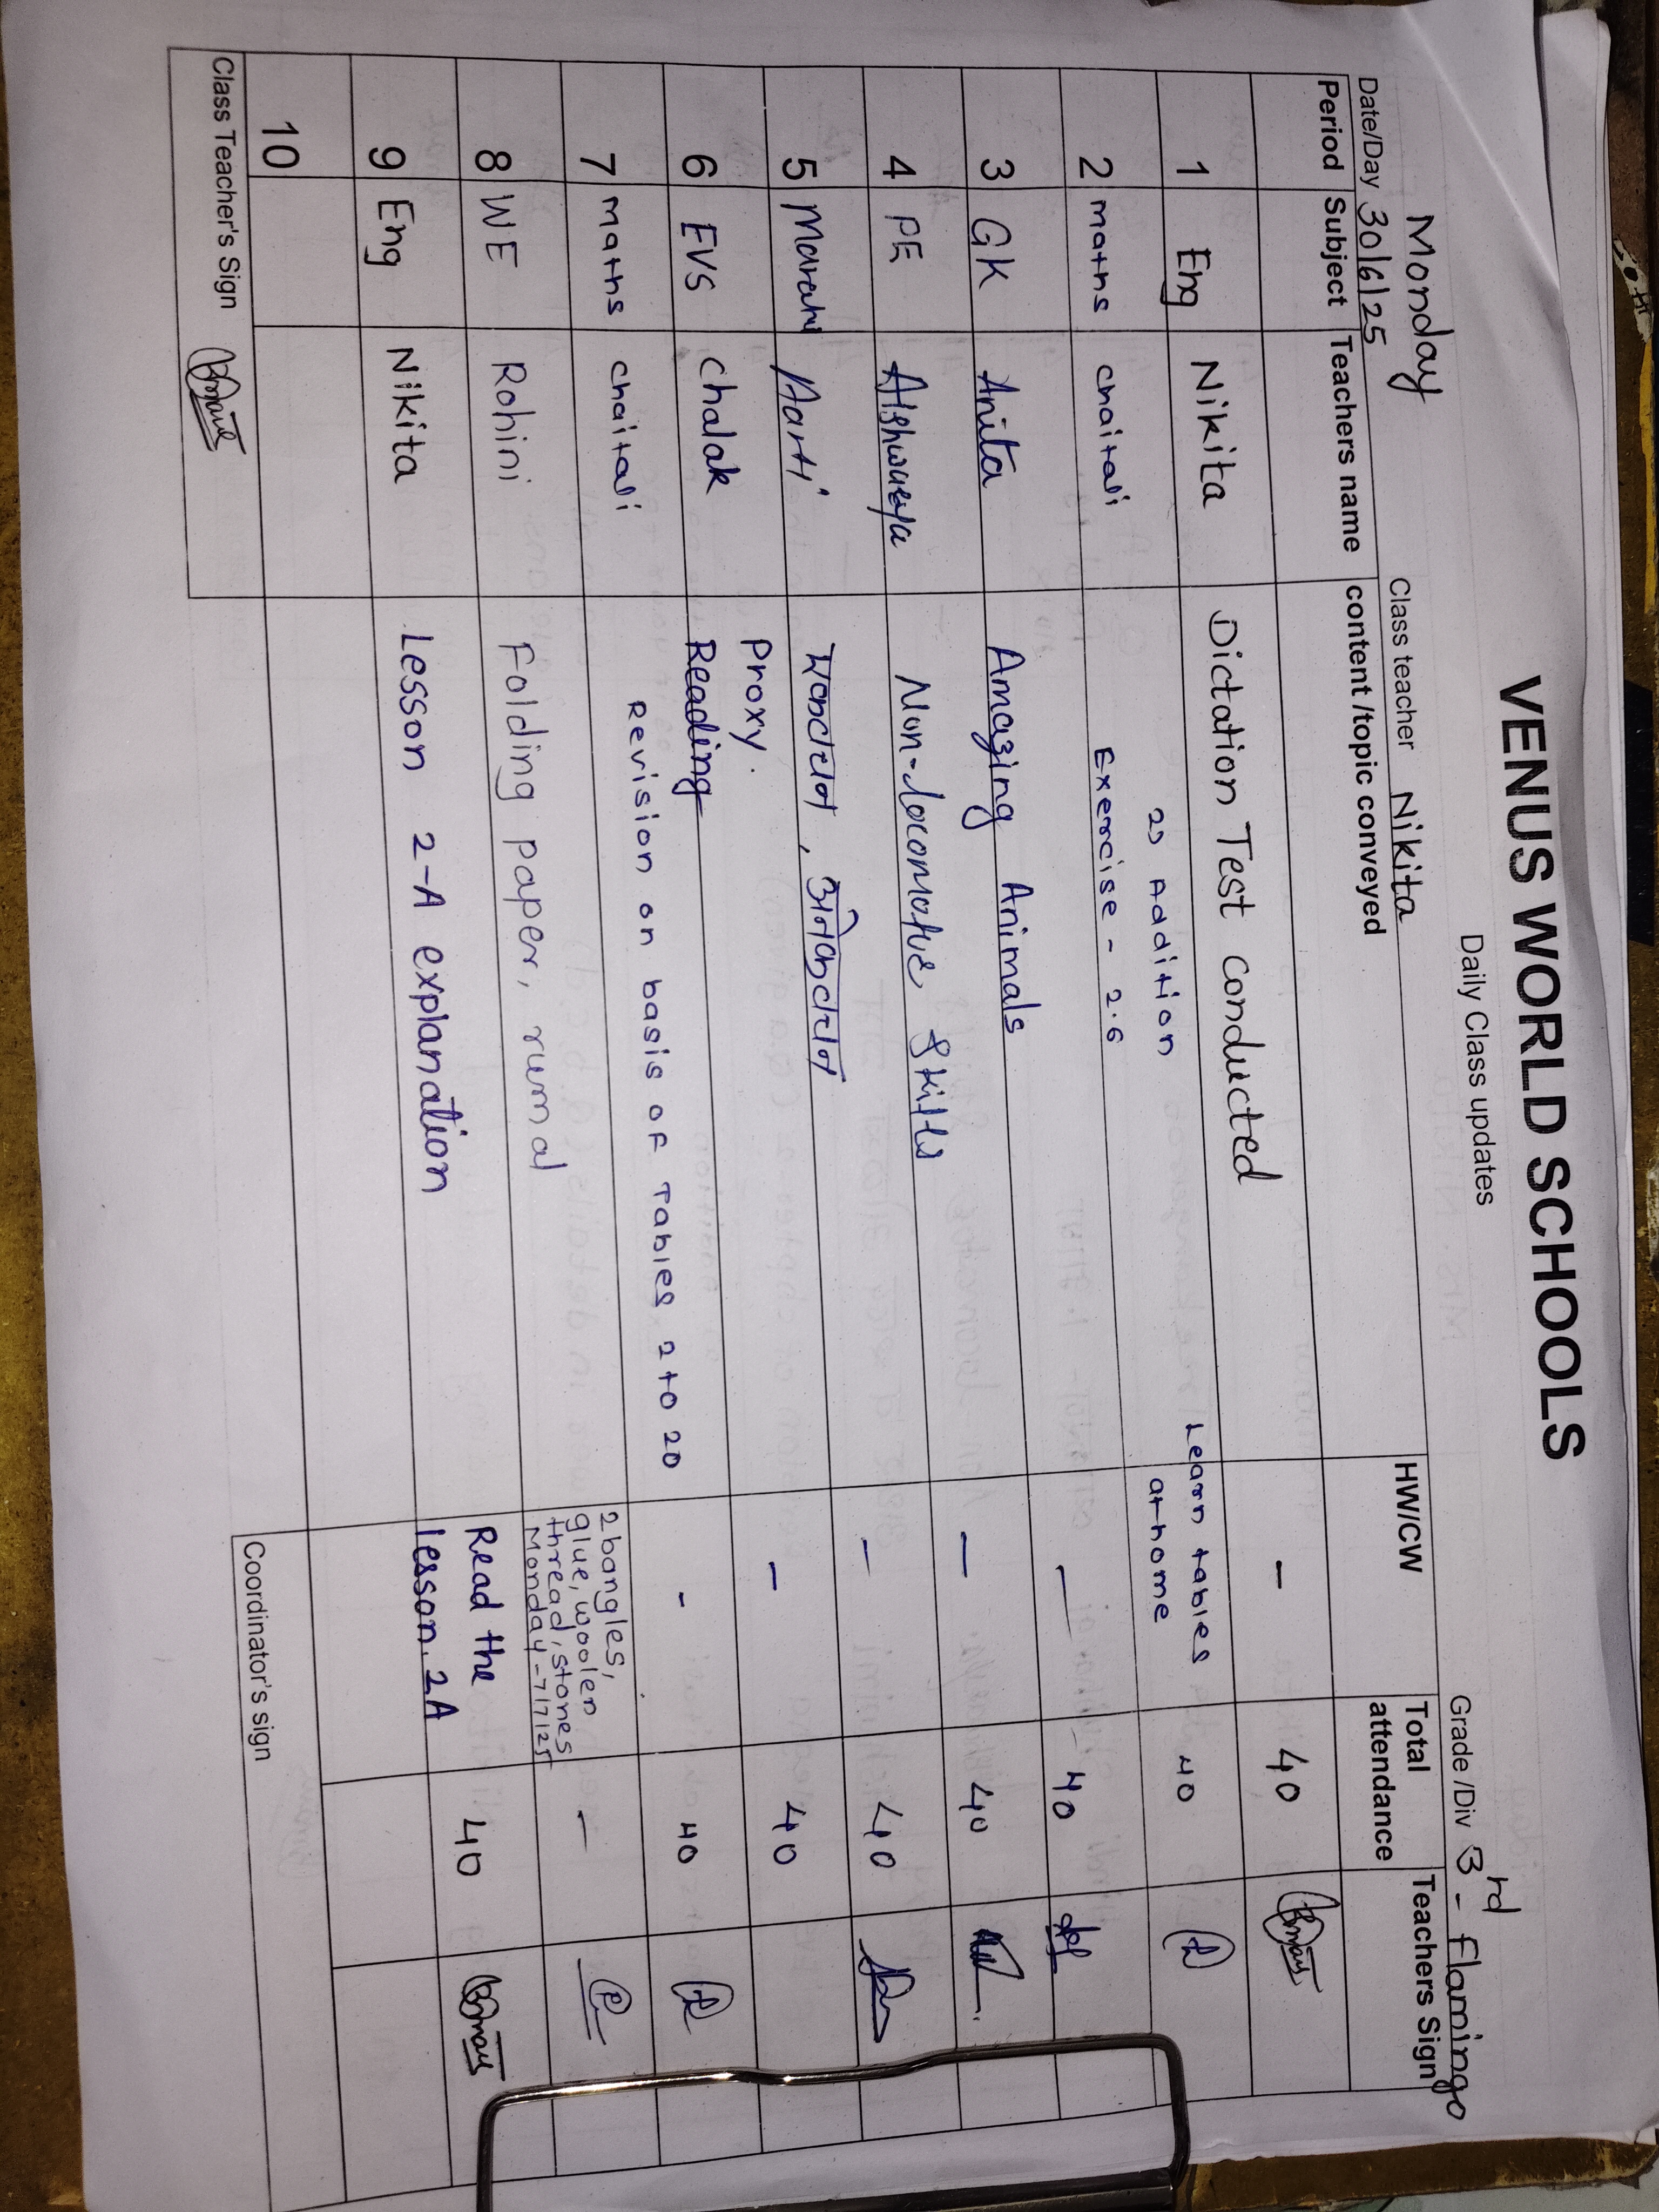 VENUS WORLD SCHOOLS
Daily Class updates
Monday
Date/Day 30/6/25 Class teacher Nikita Grade /Div 3rd - Flamingo
Period Subject Teachers name content /topic conveyed HW/CW Total attendance Teachers Sign
1 Eng Nikita Dictation Test conducted - 40
2 maths chaitali 2) Addition Exercise - 2.6 Learn tables at home 40
3 GK Anita Amazing Animals - 40
4 PE Aishwarya Non-locomotive Skills - 40
5 Marathi Aarti एकवचन, अनेकवचन - 40
6 EVS Chalak Proxy. Reading - 40
7 maths chaitali Revision on basis of Tables 2 to 20 - 40
8 WE Rohini Folding paper, rumal 2 bangles, glue, woolen thread, stones Monday - 7/7/25 -
9 Eng Nikita Lesson 2-A explanation Read the lesson. 2A 40
10
Class Teacher's Sign Coordinator's sign